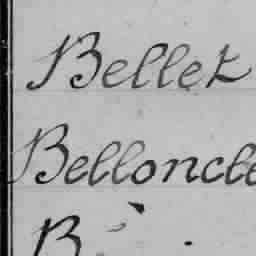 Bellet
Belloncle